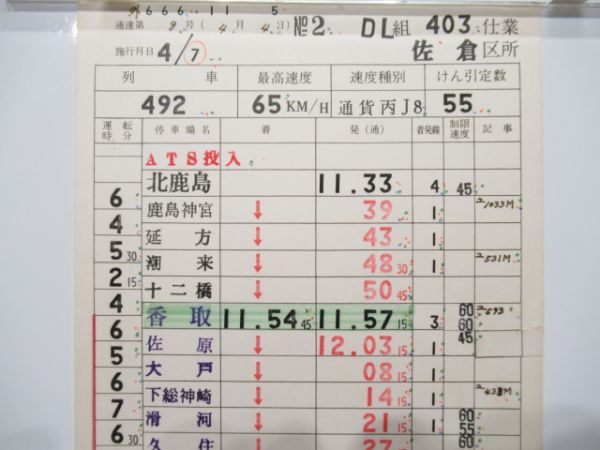 666.11.5
通達第 9号(4月4日) №2 DL組 403仕業
施行月日 4/7 佐倉区所
列車 最高速度 速度種別 けん引定数
492 65KM/H 通貨丙J8 55
運転時分 停車場名 着 発(通) 着発線 制限速度 記事
ATS投入
北鹿島 11.33 4 45
6
鹿島神宮 ↓ 39 1 1033M
4
延方 ↓ 43 1
5 30
潮来 ↓ 48 30 1 531M
2 15
十二橋 ↓ 50 45
4
香取 11.54 45 11.57 15 3 60 60 593
6
佐原 ↓ 12.03 15 1 45
5
大戸 ↓ 08 15 1
6
下総神崎 ↓ 14 15 1 428M
7
滑河 ↓ 21 15 1 60 55
6 30
久住 ↓ 27 60